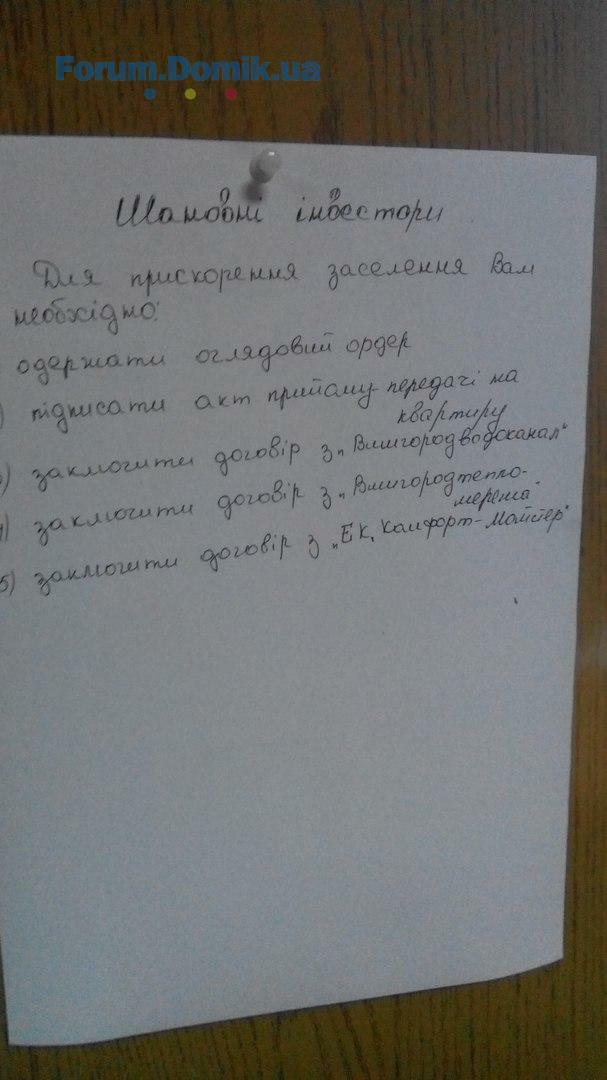 Forum.Domik.ua
Шановні інвестори
Для прискорення заселення Вам
необхідно:
одержати оглядовий ордер
) підписати акт прийому-передачі на
квартиру
) заключити договір з „Вишгородводоканал"
) заключити договір з „Вишгородтепло-
мережа"
5) заключити договір з „ЕК, Комфорт-Майстер"